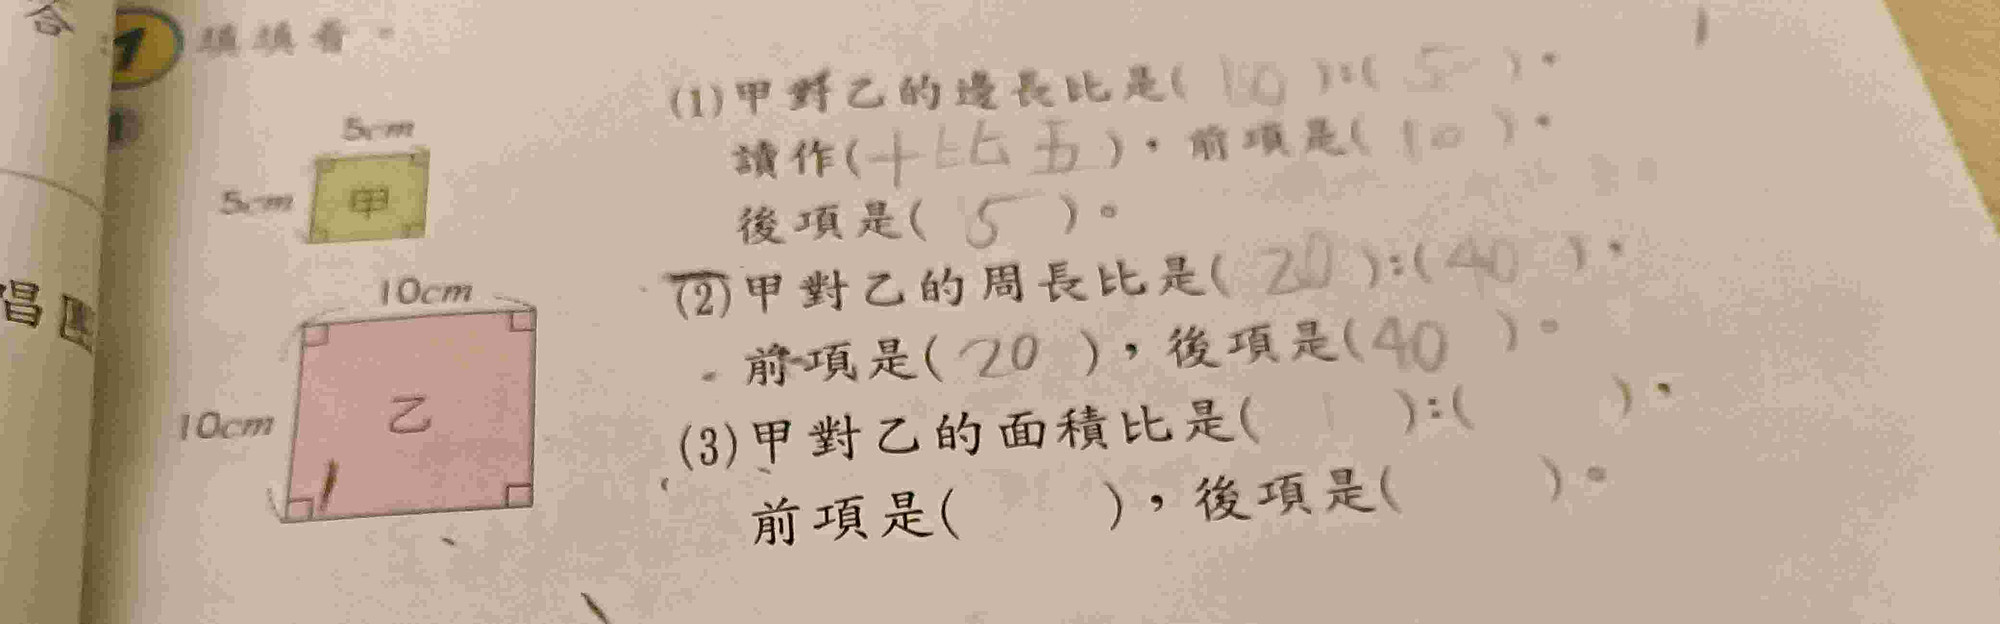 合
1 填填看。
5cm
5cm
甲
10cm
10cm
乙
(1)甲對乙的邊長比是( 10 ):( 5 )，
讀作(十比五)，前項是( 10 )，
後項是( 5 )。
(2)甲對乙的周長比是( 20 ):( 40 )，
前項是( 20 )，後項是( 40 )。
(3)甲對乙的面積比是( ):( )，
前項是( )，後項是( )。